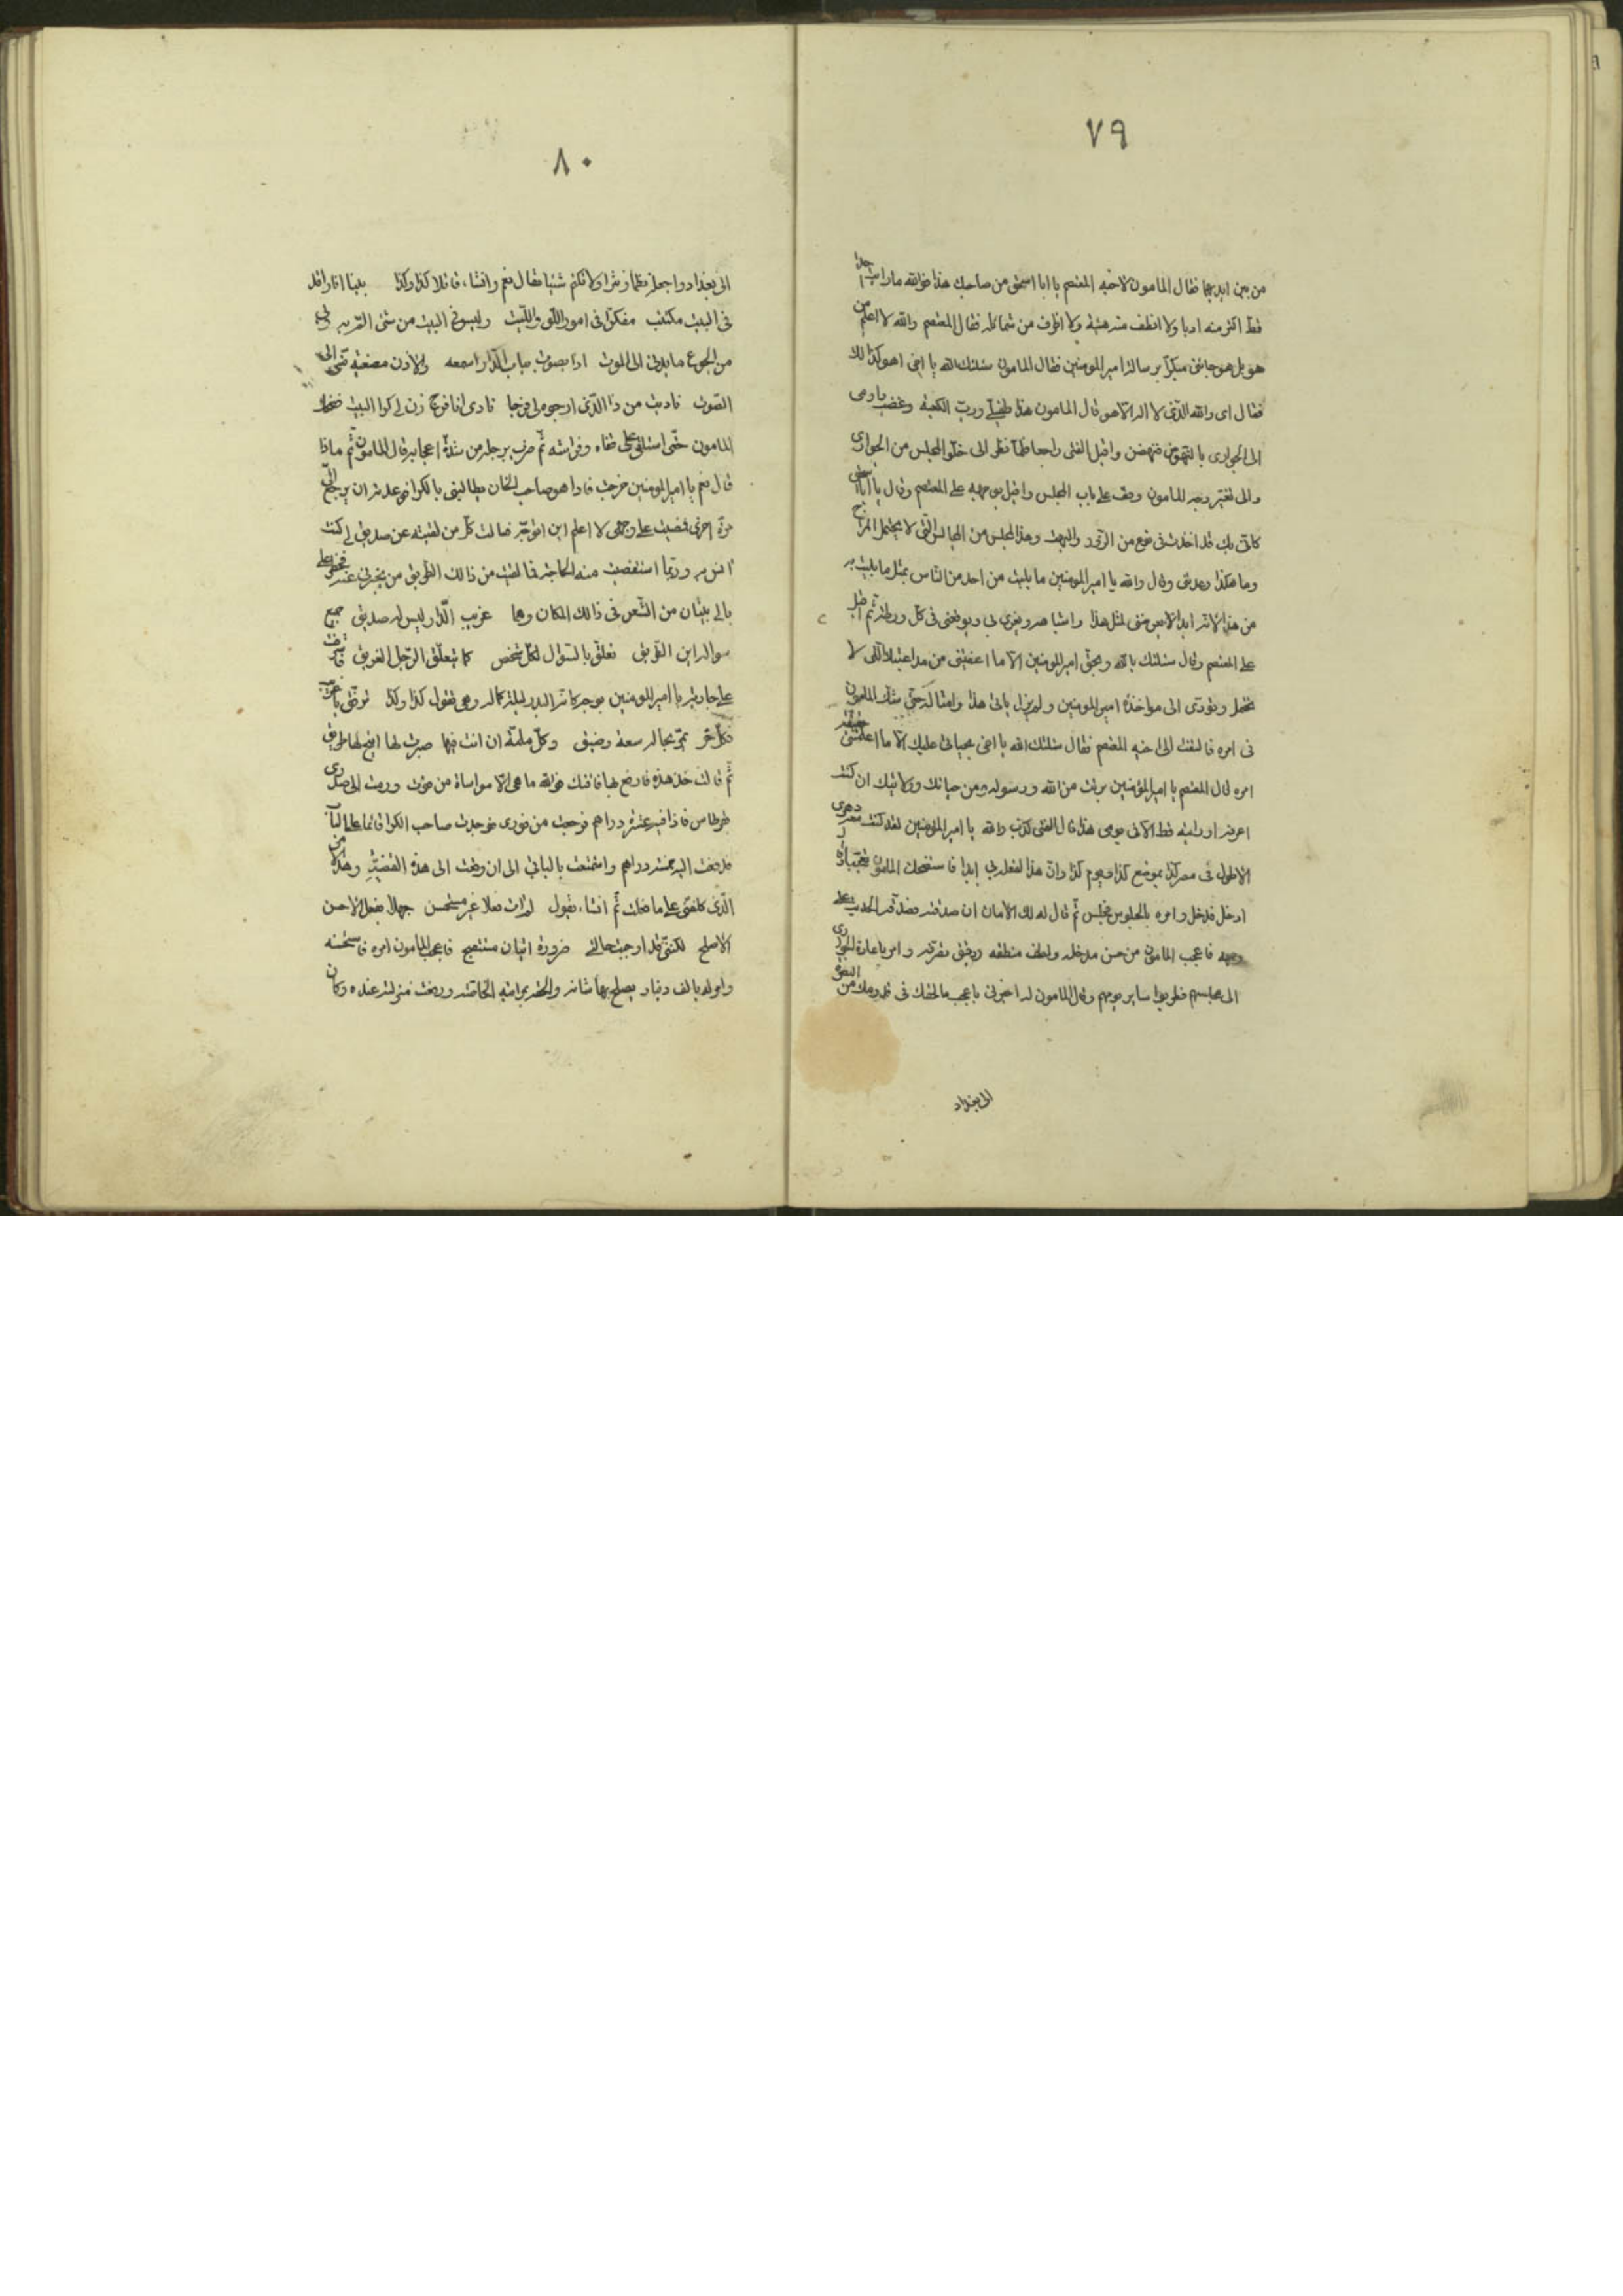 ٧٩
من بين ايديهما فقال المامون لاخيه المعتصم يا ابا اسحق من صاحبك هذا فوالله ما رايت احدا
قط اكثر منه ادبا ولا انظف منه هيئة ولا اظرف من شمائله فقال المعتصم والله لا اعلم من
هو بل هو جائنى مبكرا برسالة امير المومنين فقال المامون سئلتك الله يا اخى اهو كذالك
فقال اى والله الذى لا اله الا هو قال المامون هذا طفيلى ورب الكعبة وغضب واومى
الى الجوارى بالنهوض فنهضن واقبل الفتى راجعا فلما نظر الى خلو المجلس من الجوارى
والى تغير وجه المامون وقف على باب المجلس واقبل بوجهه على المعتصم وقال يا ابا اسحق
كانى بك قد اخذت فى نوع من الزور والبهت وهذا المجلس من المجالس التى لا يحتمل المزاح
وما هكذا وعدتنى وقال والله يا امير المومنين ما بليت من احد من الناس بمثل ما بليت به
من هذا لانه ابدا لا يعرضنى لمثل هذا واشباهه ويغرى بى ويوقعنى فى كل ورطة ثم اقبل
على المعتصم وقال سئلتك بالله وبحق امير المومنين الا ما اعفيتنى من التى لا
تحتمل وتؤدى الى مواخذة امير المومنين ولم يزل ياتى هذا وامثاله حتى شك المامون
فى امره فالتفت الى اخيه المعتصم فقال سئلتك الله يا اخى بحياتى عليك الا ما اعلمتنى حقيقة
امره قال المعتصم يا امير المؤمنين بريت من الله ورسوله ومن حياتك وولائيك ان كنت
اعرفه او رايته قط الا فى يومى هذا قال الفتى كذب والله يا امير المؤمنين لقد كنت معه دهرى
الاطول فى مصر كذا بموضع كذا ويوم كذا وان هذا لفعله بى ابدا فاستضحك المامون
ادخل فدخل وامره بالجلوس فجلس ثم قال له لك الامان ان صدقت فصدقه الحديث على
وجهه فاعجب المامون من حسن مدخله ولطف منطقه ودقيق وامر باعادة الجوارى
الى مجلسهم فطربوا ساير يومهم وقال المامون له اخبرنى باعجب ما لحقك فى قدومك من البصرة
الى بغداد
٨٠
الى بغداد واجعله نظما ونثرا ولا تكتم شيئا فقال نعم وانشاء قائلا كذا وكذا بينا انا راقد
فى البيت مكتئب مفكرا فى امور الليت وليس فى البيت من شئ القربه بى
من الجوع ما يدنى الى الموت اذا بصوت بباب الدار اسمعه والاذن مصغية منى الى
الصوت ناديت من ذا الذى ارجو لى فرجا نادى انا فرج زن لى كرا البيت فضحك
المامون حتى استلقى على قفاه وفراشه ثم ضرب برجله من شدة اعجابه قال المامون ثم ماذا
قال نعم يا امير المومنين خرجت فاذا هو صاحب الخان يطالبنى بالكرا فوعدته ان يرجع الى
مرة اخرى فمضيت على وجهى لا اعلم اين اتوجه فسالت كل من لقيته عن صديق لى كنت
انس به وربما استقضيت منه الحاجة فما لقيت من ذالك الطريق من يخبرنى عنه فخطر على
بالى بيتان من الشعر فى ذالك المكان وهما غريب الدار ليس له صديق جميع
سواله اين الطريق تعلق بالسؤال لكل شخص كما يتعلق الرجل الغريق فاشرفت
على جارية يا امير المومنين بوجه كانه البدر ليلة كماله وهى تقول كذا وكذا ترفق يا غريب
فكل حر تمر بحاله سعة وضيق وكل ملمة ان انت فيها صبرت لها اتيح لها طريق
ثم قالت خذ هذه فارفع بها فاقتك فوالله ما هى الا مواساة من قوت ورمت الى صدرى
قرطاس فاذا فيه عشرة دراهم فرحت من فورى فوجدت صاحب الكرا قائما على الباب
فدفعت اليه خمسة دراهم واستمتعت بالباقى الى ان وقعت الى هذه القضية وهذا من
الذى كلفنى على ما فعلت ثم انشاء يقول لم ات فعلا غير مستحسن جهلا بفعل الاحسن
الاصلح لكننى قد اوجبت حالتى ضرورة اتيان مستقبح فاعجب المامون امره فاستحسنه
وامر له بالف دينار يصلح بها شانه والحقه بمراتبة الخاصة ورفعت منزلته عنده وكان